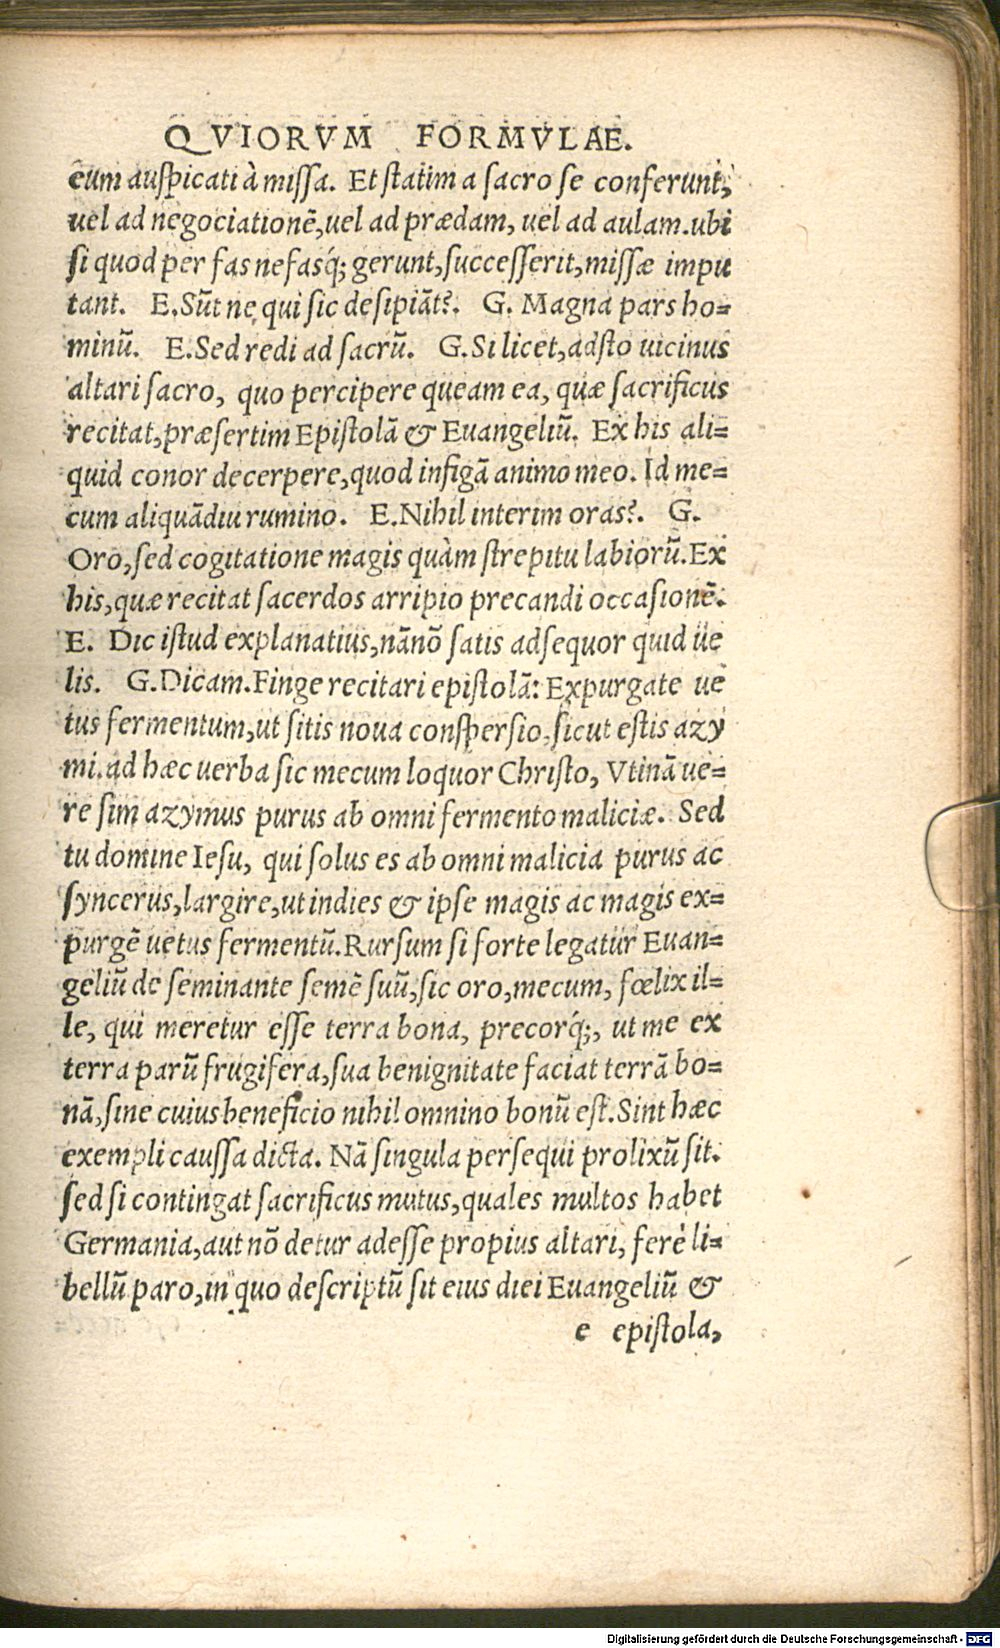 QVIORVM FORMVLAE.
eum auspicati à missa. Et statim a sacro se conferunt,
uel ad negociationē, uel ad prædam, uel ad aulam. ubi
si quod per fas nefasq́; gerunt, successerit, missæ impu
tant. E. Sūt ne qui sic desipiāt?. G. Magna pars ho=
minū. E. Sed redi ad sacrū. G. Si licet, adsto uicinus
altari sacro, quo percipere queam ea, quæ sacrificus
recitat, præsertim Epistolā & Euangeliū. Ex his ali=
quid conor decerpere, quod infigā animo meo. Id me=
cum aliquādiu rumino. E. Nihil interim oras?. G.
Oro, sed cogitatione magis quàm strepitu labiorū. Ex
his, quæ recitat sacerdos arripio precandi occasionē.
E. Dic istud explanatius, nā nō satis adsequor quid ue
lis. G. Dicam. Finge recitari epistolā: Expurgate ue
tus fermentum, ut sitis noua conspersio, sicut estis azy
mi. ad hæc uerba sic mecum loquor Christo, Vtinā ue=
re sim azymus purus ab omni fermento maliciæ. Sed
tu domine Iesu, qui solus es ab omni malicia purus ac
syncerus, largire, ut indies & ipse magis ac magis ex=
purgē uetus fermentū. Rursum si forte legatur Euan=
geliū de seminante semē suū, sic oro, mecum, fœlix il=
le, qui meretur esse terra bona, precorq́;, ut me ex
terra parū frugifera, sua benignitate faciat terrā bo=
nā, sine cuius beneficio nihil omnino bonū est. Sint hæc
exempli caussa dicta. Nā singula persequi prolixū sit.
sed si contingat sacrificus mutus, quales multos habet
Germania, aut nō detur adesse propius altari, ferè li=
bellū paro, in quo descriptū sit eius diei Euangeliū &
e epistola,
Digitalisierung gefördert durch die Deutsche Forschungsgemeinschaft - DFG